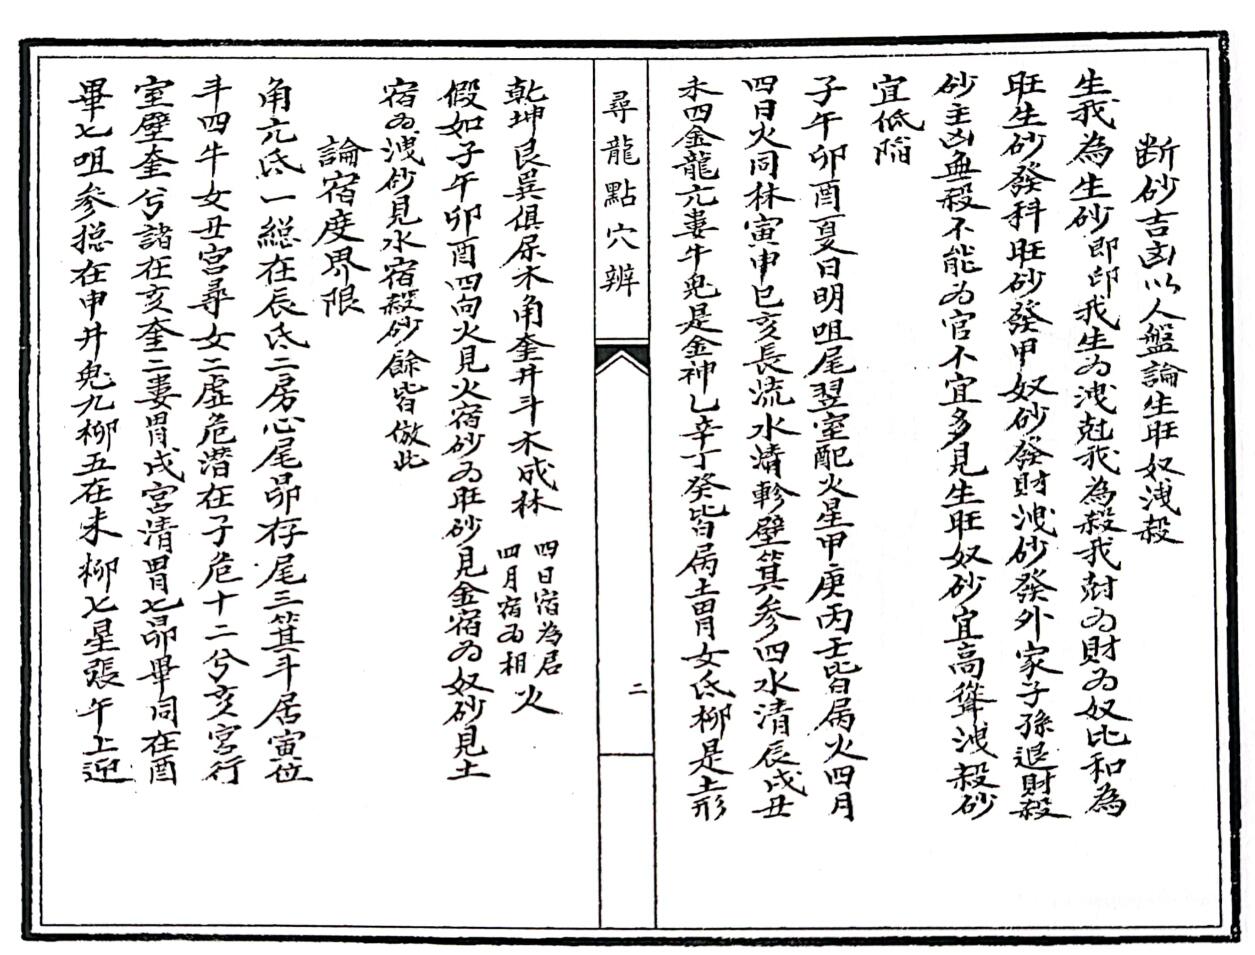 断砂吉凶以人盤論生旺奴洩殺
生我為生砂即印我生为洩尅我為殺我尅为財为奴比和為
旺生砂發科旺砂發甲奴砂發財洩砂發外家子孫退財殺
砂主凶無殺不能为官不宜多見生旺奴砂宜高聳洩殺砂
宜低陷
子午卯酉夏日明咀尾翌室配火星甲庚丙壬皆属火四月
四日火同林寅申巳亥長流水清軫壁箕参四水清辰戌丑
未四金龍亢婁牛鬼是金神乙辛丁癸皆属土胃女氐柳是土形
尋龍點穴辨
二
乾坤艮巽俱屬木角奎井斗木成林四日宿為君四月宿为相火
假如子午卯酉四向火見火宿砂为旺砂見金宿为奴砂見土
宿为洩砂見水宿殺砂餘皆倣此
論宿度界限
角亢氐一縂在辰氐二房心尾卯存尾三箕斗居寅位
斗四牛女丑宮尋女二虛危潛在子危十二兮亥宮行
室壁奎兮諸在亥奎二婁胃戌宮清胃七昴畢同在酉
畢七咀参捴在申井鬼九柳五在未柳七星張午上迎